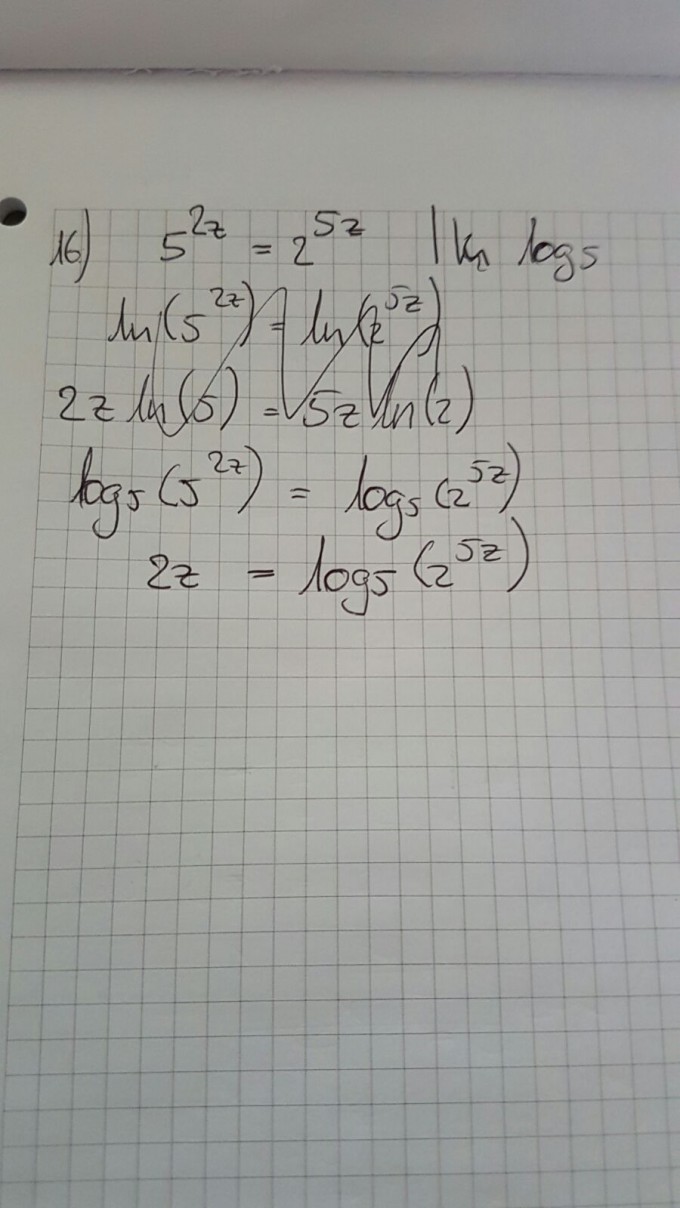 16) 5^2z = 2^5z | ln log5
ln(5^2z) = ln(2^5z)
2z ln(5) = 5z ln(2)
log5(5^2z) = log5(2^5z)
2z = log5(2^5z)